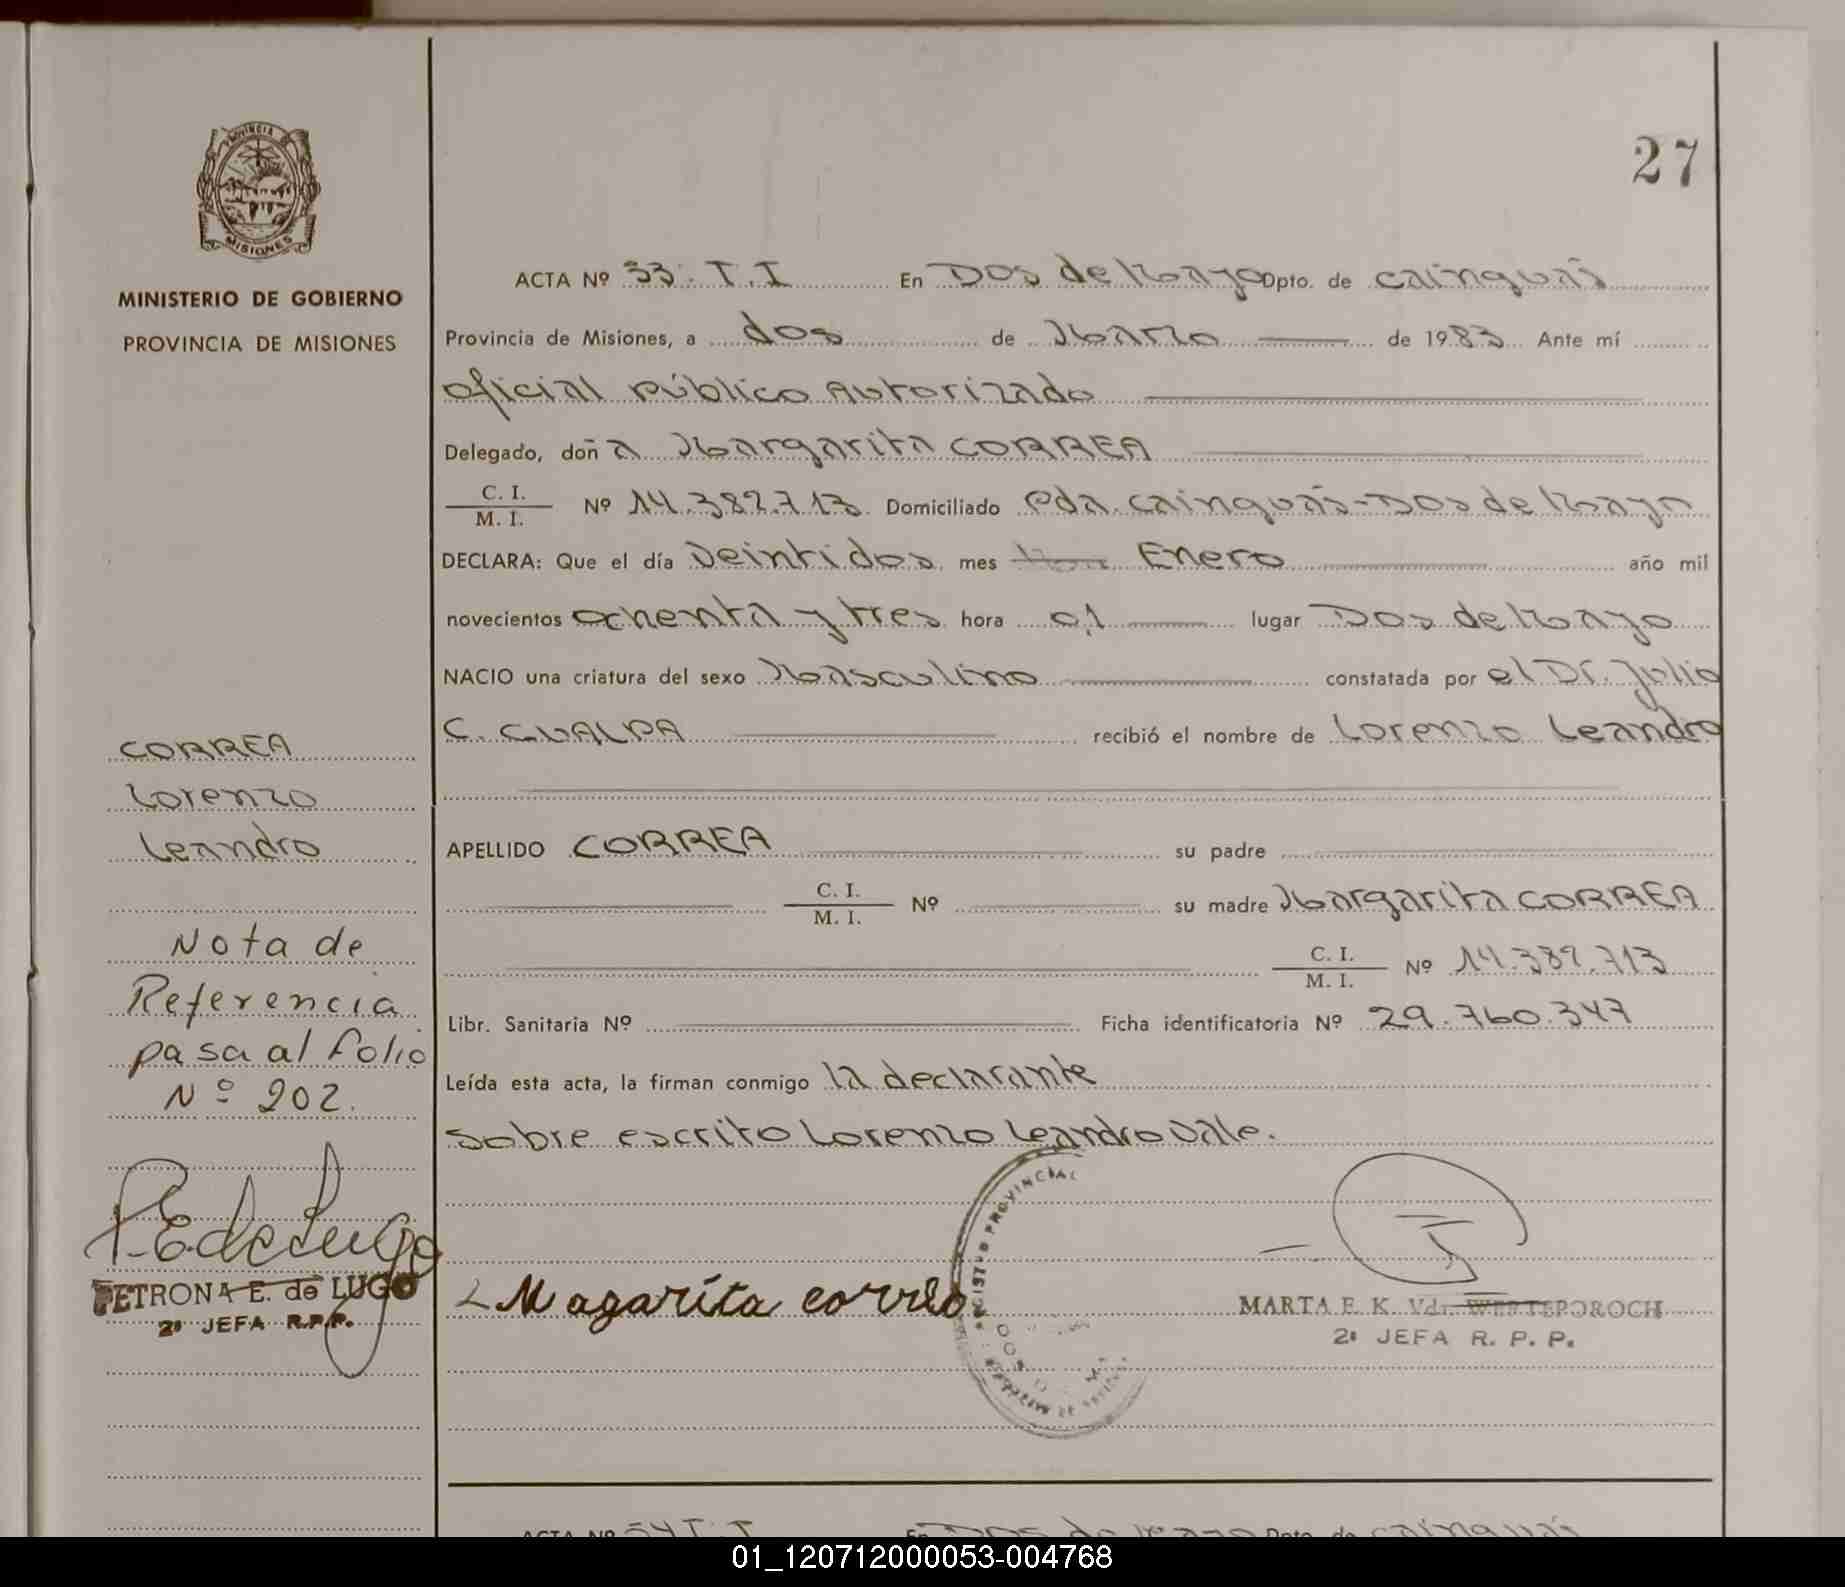 27
PROVINCIA
MISIONES
MINISTERIO DE GOBIERNO
PROVINCIA DE MISIONES
ACTA Nº 53. T.I En Dos de Mayo Dpto. de Cainguás
Provincia de Misiones, a dos de Marzo de 1983 Ante mí
Oficial Público Autorizado
Delegado, doña Margarita CORREA
C. I.
M. I. Nº 14.382.713 Domiciliado Pda. Cainguás-Dos de Mayo
DECLARA: Que el día Veintidos mes Enero año mil
novecientos ochenta y tres hora 01 lugar Dos de Mayo
NACIO una criatura del sexo Masculino constatada por el Dr. Julio
C. GUALPA recibió el nombre de Lorenzo Leandro
APELLIDO CORREA su padre
C. I.
M. I. Nº su madre Margarita CORREA
C. I.
M. I. Nº 14.382.713
Libr. Sanitaria Nº Ficha identificatoria Nº 29.760.347
Leída esta acta, la firman conmigo la declarante
Sobre escrito Lorenzo Leandro Vale.
CORREA
Lorenzo
Leandro
Nota de
Referencia
pasa al folio
Nº 202.
P.E. de Lugo
PETRONA E. de LUGO
2ª JEFA R.P.P.
Magarita correa
REGISTRO PROVINCIAL
MARTA E. K. Vda. WERTEPOROCH
2ª JEFA R. P. P.
ACTA Nº 54 T.I En Dos de Mayo Dpto. de Cainguás
01_120712000053-004768